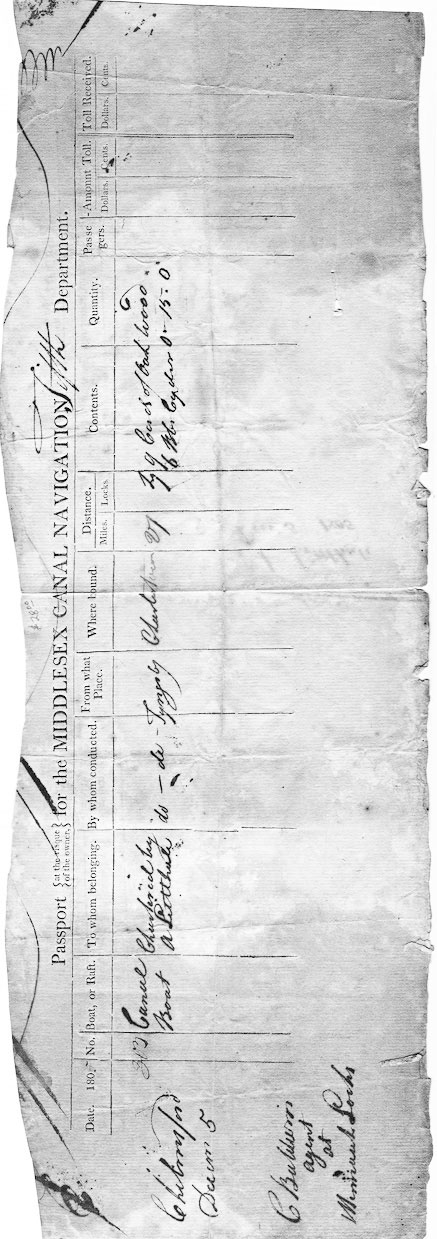 Fifth
Passport {at the risque of the owner,} for the MIDDLESEX CANAL NAVIGATION, Department.
Date, 180 No. Boat, or Raft. To whom belonging. By whom conducted. From what Place. Where bound. Distance. Miles. Locks Contents. Quantity. Passengers. Amount Toll. Dollars. Cents. Toll Received. Dollars. Cents.
Chelmsford Canal Chartered by do - de - Tyngsby Charlestown 27 9 Cords of Oak Wood
Decm 5 Boat A 6 Bbls Cyder 0-15-0
C Baldwin
agent
at
Locks